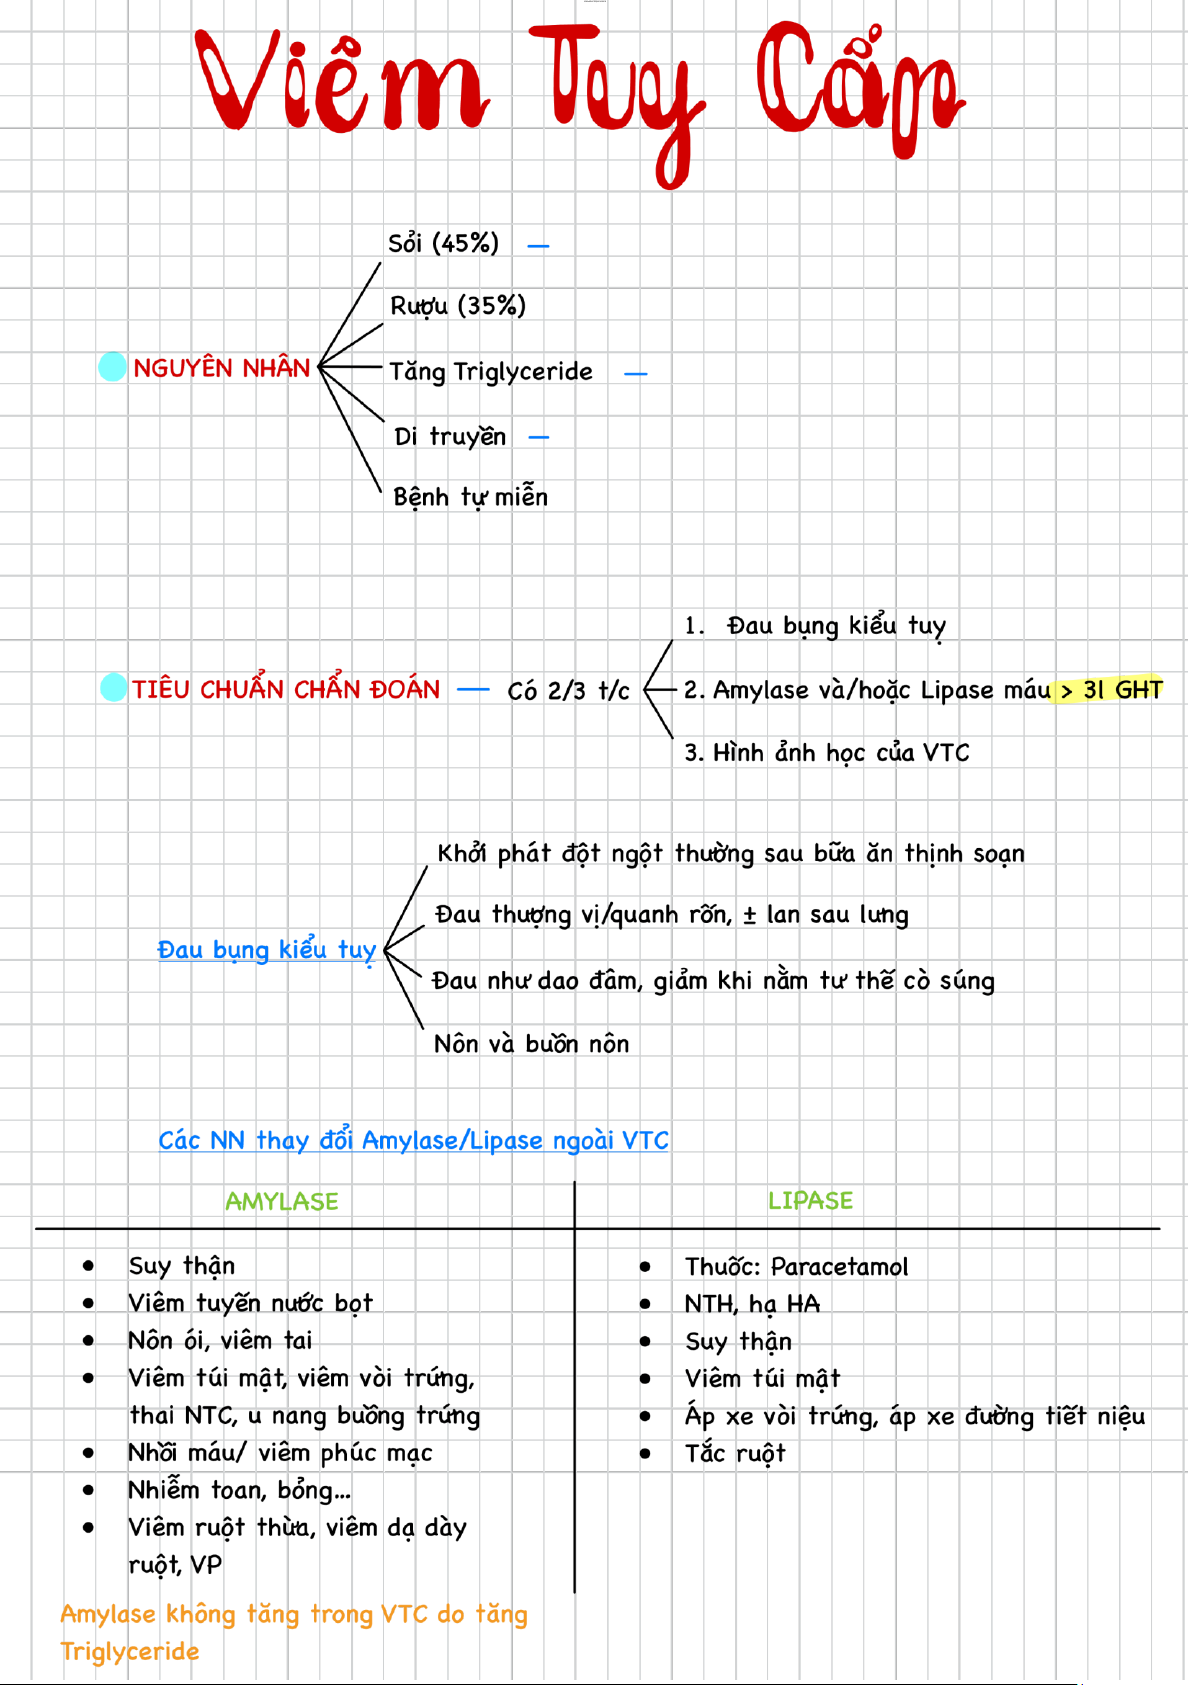 Viêm Tuỵ Cấp
Sỏi (45%) —
Rượu (35%)
NGUYÊN NHÂN
Tăng Triglyceride —
Di truyền —
Bệnh tự miễn
1. Đau bụng kiểu tuỵ
TIÊU CHUẨN CHẨN ĐOÁN — Có 2/3 t/c
2. Amylase và/hoặc Lipase máu > 3l GHT
3. Hình ảnh học của VTC
Khởi phát đột ngột thường sau bữa ăn thịnh soạn
Đau thượng vị/quanh rốn, ± lan sau lưng
Đau bụng kiểu tuỵ
Đau như dao đâm, giảm khi nằm tư thế cò súng
Nôn và buồn nôn
Các NN thay đổi Amylase/Lipase ngoài VTC
AMYLASE
• Suy thận
• Viêm tuyến nước bọt
• Nôn ói, viêm tai
• Viêm túi mật, viêm vòi trứng,
thai NTC, u nang buồng trứng
• Nhồi máu/ viêm phúc mạc
• Nhiễm toan, bỏng...
• Viêm ruột thừa, viêm dạ dày
ruột, VP
Amylase không tăng trong VTC do tăng
Triglyceride
LIPASE
• Thuốc: Paracetamol
• NTH, hạ HA
• Suy thận
• Viêm túi mật
• Áp xe vòi trứng, áp xe đường tiết niệu
• Tắc ruột